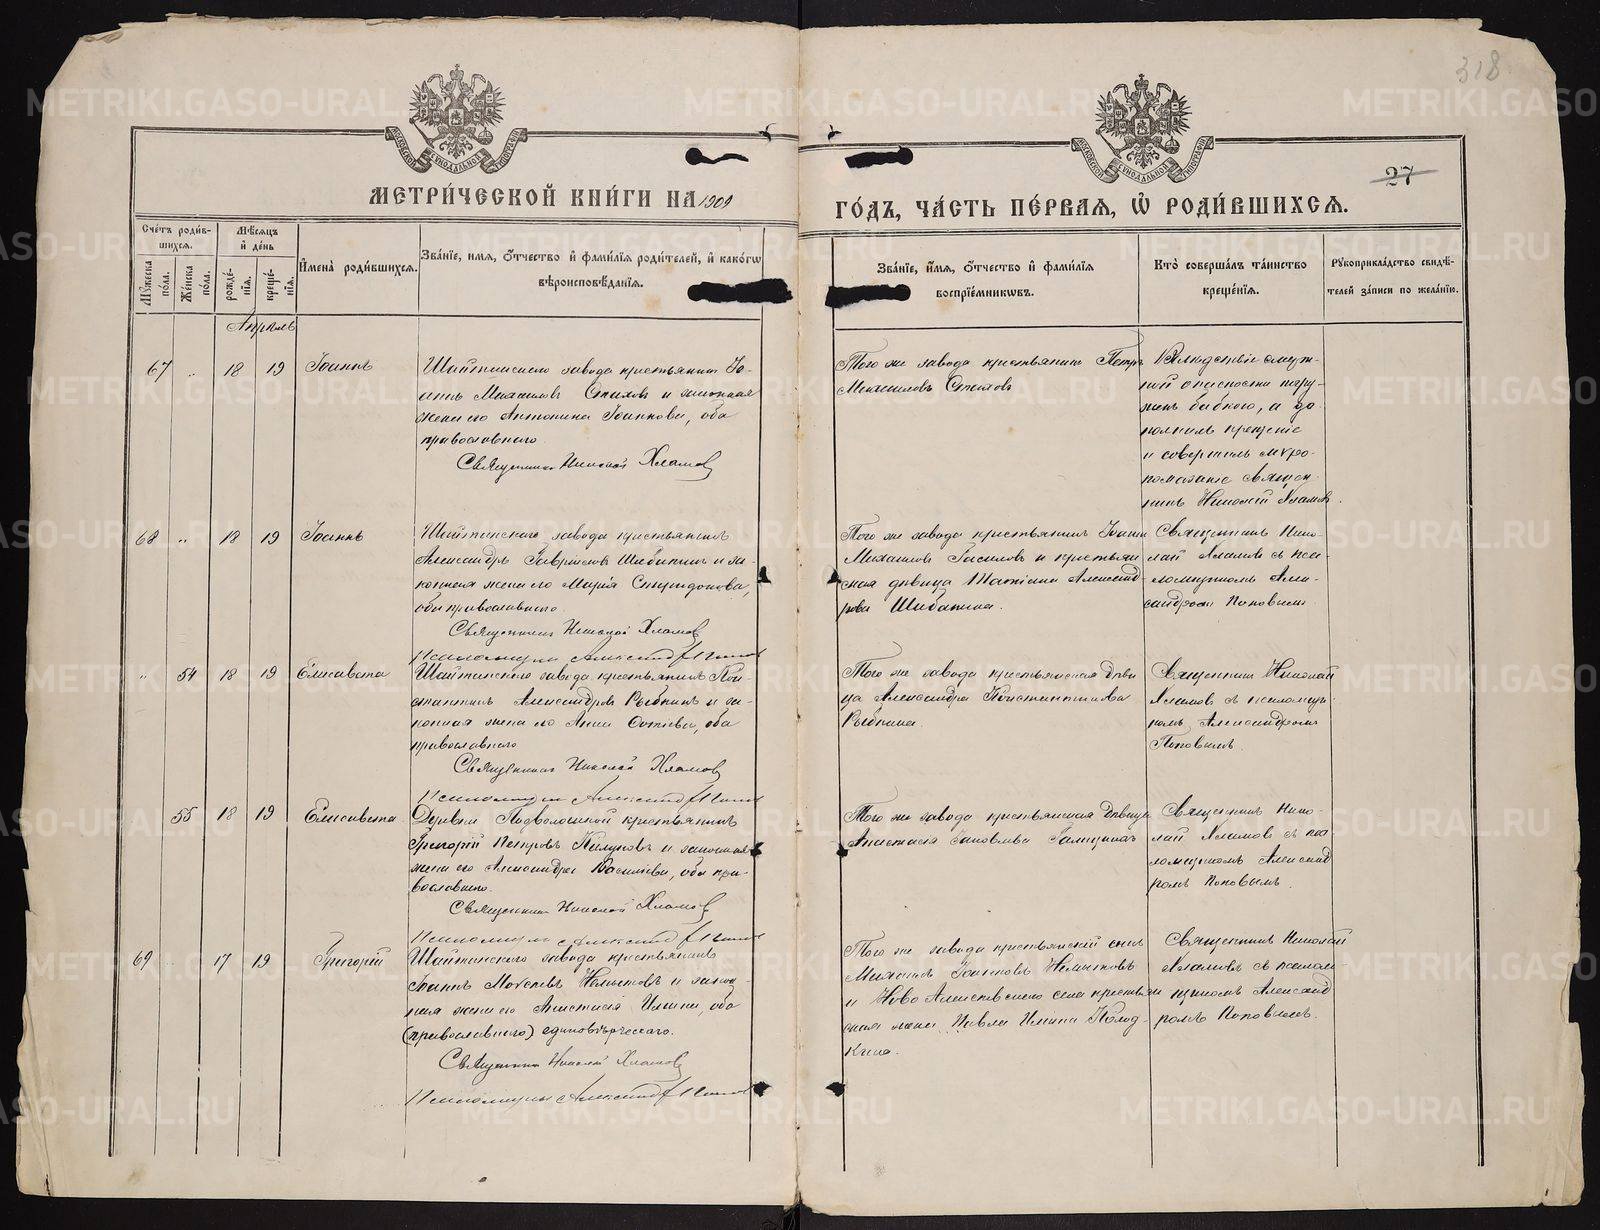 318
27
МЕТРИ́ЧЕСКОЙ КНИ́ГИ НА 1909
ГО́ДЪ, ЧА́СТЬ ПЕ́РВАЯ, Ѡ҆ РОДИ́ВШИХСЯ.
Сче́тъ роди́в-
шихся.
Мꙋ́жеска по́ла.
Же́нска по́ла.
Мѣ́сяцъ и҆ де́нь
рожде́-нїя.
креще́-нїя.
И҆мена̀ роди́вшихся.
Зва́нїе, имя, ѻ҆́тчество и҆ фами́лїя роди́телей, и҆ како́гѡ
вѣроисповѣ́данїя.
Зва́нїе, и҆́мя, ѻ҆́тчество и҆ фами́лїя
воспрїе́мникѡвъ.
Кто̀ соверша́лъ та́инство
креще́нїя.
Рꙋкоприкла́дство свидѣ́-
телей за́писи по жела́нїю.
Апрѣль
67 „ 18 19 Іоаннъ
Шайтанскаго завода крестьянинъ Іо-
аннъ Михаиловъ и законная
жена его Антонина Іоаннова, оба
православнаго
Священникъ Николай Хламов
Того же завода крестьянинъ Петръ
Михаиловъ
Вслѣдствіе смерт-
ной опасности погру-
женъ бабкою, а до
полнилъ крещеніе
и совершилъ мѵро-
помазаніе Священ
никъ Николай Хламовъ
68 „ 18 19 Іоаннъ
Шайтанскаго завода крестьянинъ
Александръ Гавріиловъ Шибакинъ и за-
конная жена его Марія Спиридонова,
оба православнаго.
Священникъ Николай Хламов
Псаломщикъ Александр Попов
Того же завода крестьянинъ Іоаннъ
Михаиловъ и крестьян
ская дѣвица Татіана Александ-
рова Шибакина.
Священникъ Нико-
лай Хламовъ съ пса-
ломщикомъ Алек-
сандромъ Поповымъ
„ 54 18 19 Елисавета
Шайтанскаго завода крестьянинъ Кон-
стантинъ Александровъ Рыбкинъ и за-
конная жена его Анна Фотіева, оба
православнаго
Священникъ Николай Хламов
Псаломщикъ Александр Попов
Того же завода крестьянская дѣви
ца Александра Константинова
Рыбкина.
Священникъ Николай
Хламовъ съ псаломщи
комъ Александромъ
Поповымъ.
55 18 19 Елисавета
Деревни Подволошной крестьянинъ
Григорій Петровъ и законная
жена его Александра Василіева, оба пра-
вославнаго.
Священникъ Николай Хламов
Псаломщикъ Александр Попов
Того же завода крестьянская дѣвица
Анастасія Іаковлева
Священникъ Нико-
лай Хламовъ съ пса
ломщикомъ Александ
ромъ Поповымъ.
69 17 19 Григорій
Шайтанскаго завода крестьянинъ
Іоаннъ Моѵсеевъ и закон-
ная жена его Анастасія Ильина, оба
(православнаго) единовѣрческаго.
Священникъ Николай Хламов
Псаломщикъ Александр Попов
Того же завода крестьянскій сынъ
Михаилъ Іоанновъ
и Ново Алексѣевскаго села крестьян
ская жена Павла Ильина Колод-
кина.
Священникъ Николай
Хламовъ съ псалом-
щикомъ Александ
ромъ Поповымъ.
METRIKI.GASO-URAL.RU